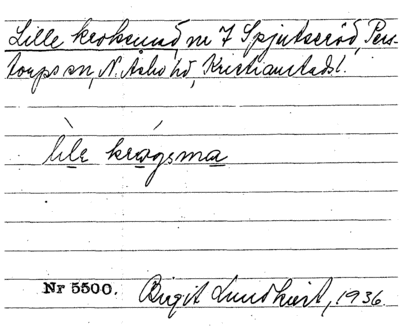 Lille kroksmad, nr 7 Spjutseröd, Pers-
torps sn, N. Åsbo hd, Kristianstads l.
lìle krágsma
Nr 5500. Birgit Lundkvist, 1936.